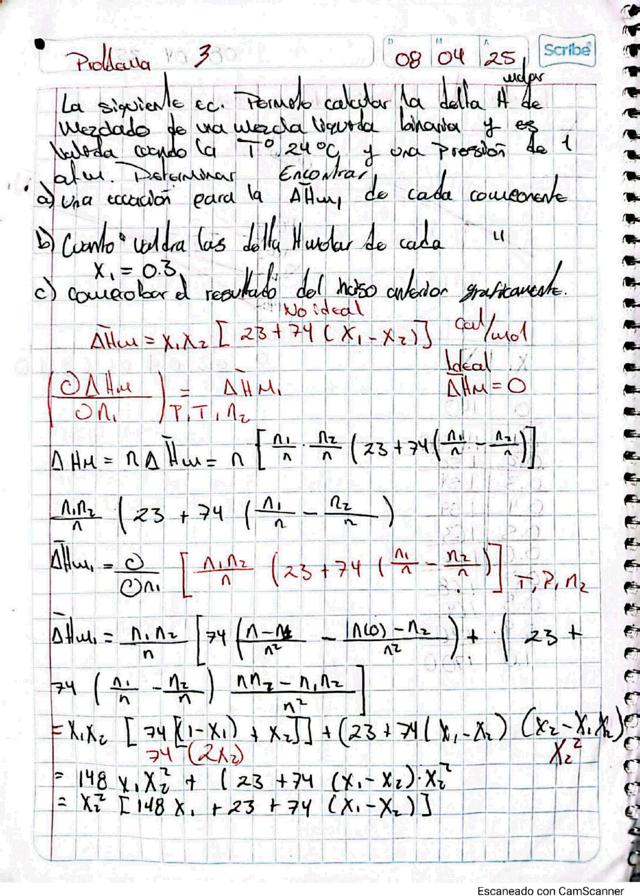 Problema 3
08 04 25
Scribe
La siguiente ec. Permote calcular la della H de molar
Mezclado de una mezcla liquida binaria y es
valida cuando la T° 24°C y una Pressión de 1
atm. Determinar Encontrar
a) una ecuación para la ΔH̄m₁ de cada componente
b) Cuanto valdra las della H molar de cada "
x₁ = 0.3
c) comprobar el resultado del inciso anterior graficamente.
No ideal
ΔH̄m = x₁x₂ [23 + 74 (x₁ - x₂)] cal/mol
Ideal
ΔH̄m = 0
(∂ΔHm / ∂n₁) P, T, n₂ = ΔH̄m₁
ΔHm = nΔH̄m = n [n₁/n · n₂/n (23 + 74 (n₁/n - n₂/n)]
n₁n₂/n (23 + 74 (n₁/n - n₂/n)
ΔH̄m₁ = ∂/∂n₁ [n₁n₂/n (23 + 74 (n₁/n - n₂/n)] T, P, n₂
ΔH̄m₁ = n₁n₂/n [74 (n-n₁/n² - n(0)-n₂/n²) + (23 +
74 (n₁/n - n₂/n) nn₂ - n₁n₂/n²]
= x₁x₂ [74 [(1-x₁) + x₂]] + (23 + 74 (x₁-x₂) (x₂-x₁x₂)
74 (2x₂) x₂²
= 148 x₁x₂² + (23 + 74 (x₁-x₂) · x₂²
= x₂² [148 x₁ + 23 + 74 (x₁-x₂)]
Escaneado con CamScanner